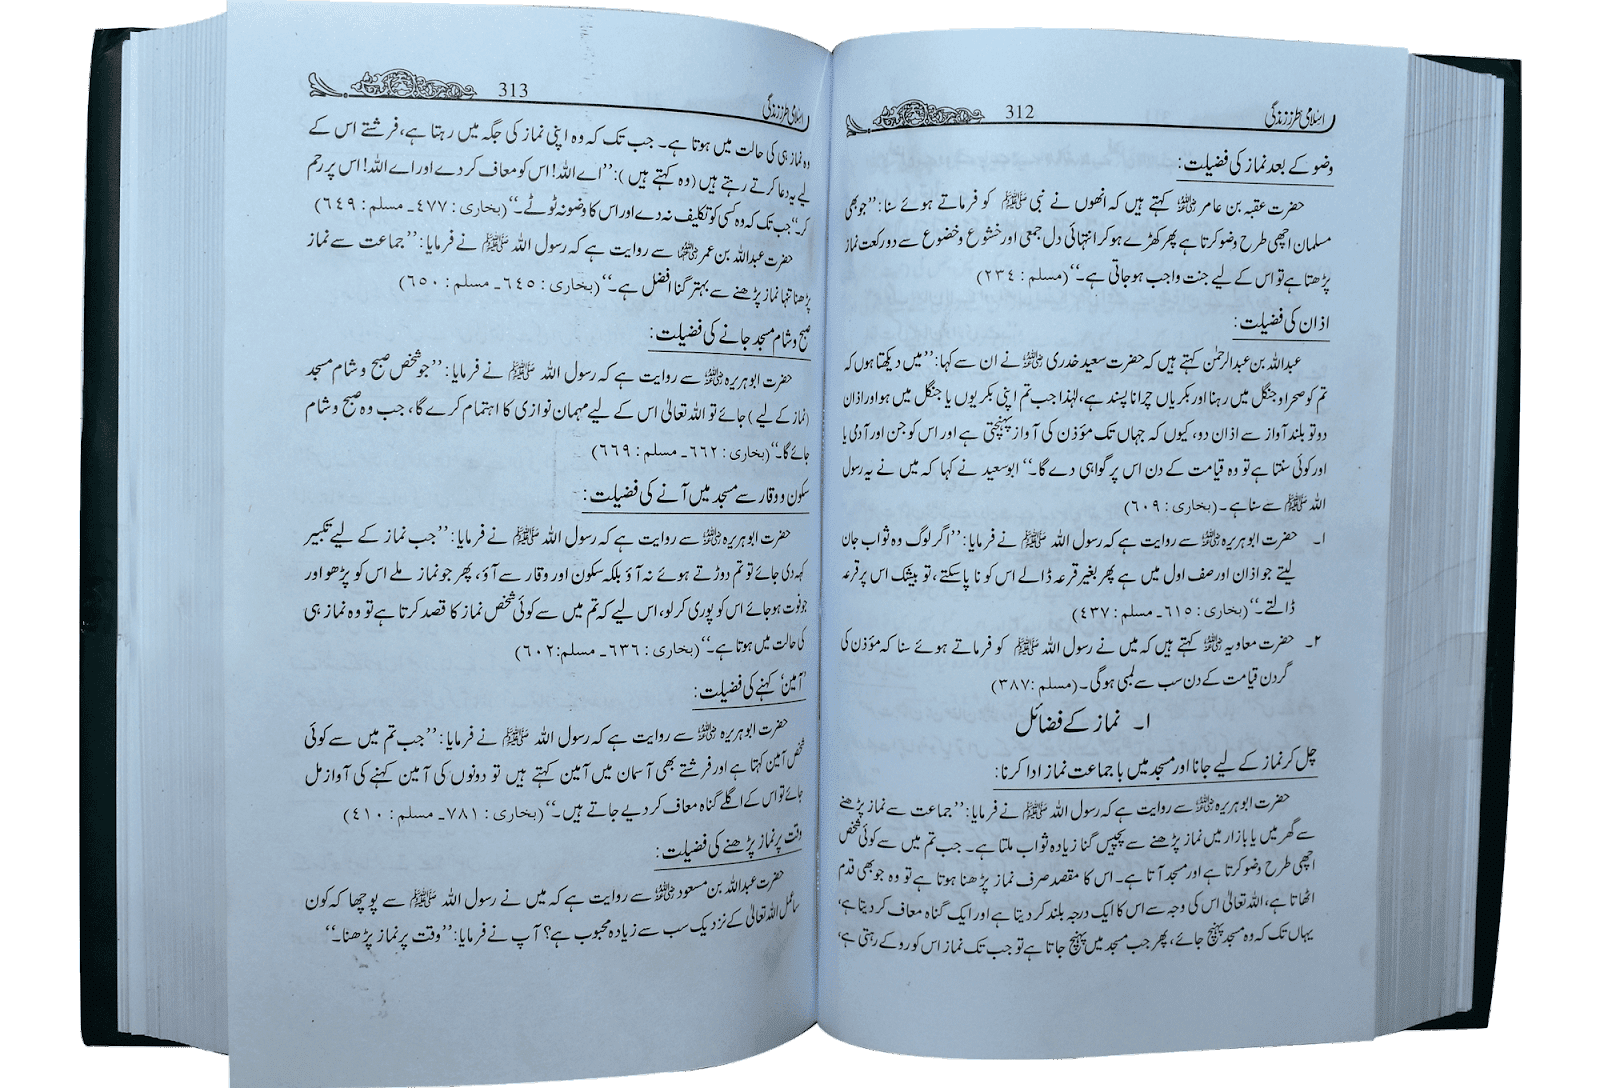 اسلامی طرز زندگی 312
وضو کے بعد نماز کی فضیلت:
حضرت عقبہ بن عامر رضی اللہ عنہ کہتے ہیں کہ انھوں نے نبی ﷺ کو فرماتے ہوئے سنا: ’’جو بھی
مسلمان اچھی طرح وضو کرتا ہے پھر کھڑے ہو کر انتہائی دل جمعی اور خشوع و خضوع سے دو رکعت نماز
پڑھتا ہے تو اس کے لیے جنت واجب ہو جاتی ہے۔‘‘ (مسلم : ۲۳۴)
اذان کی فضیلت:
عبداللہ بن عبدالرحمٰن کہتے ہیں کہ حضرت سعید خدری رضی اللہ عنہ نے ان سے کہا: ’’میں دیکھتا ہوں کہ
تم کو صحرا و جنگل میں رہنا اور بکریاں چرانا پسند ہے، لہٰذا جب تم اپنی بکریوں یا جنگل میں ہو اور اذان
دو تو بلند آواز سے اذان دو، کیوں کہ جہاں تک مؤذن کی آواز پہنچتی ہے اور اس کو جن اور آدمی یا
اور کوئی سنتا ہے تو وہ قیامت کے دن اس پر گواہی دے گا۔‘‘ ابوسعید نے کہا کہ میں نے یہ رسول
اللہ ﷺ سے سنا ہے۔ (بخاری : ۶۰۹)
۱۔ حضرت ابوہریرہ رضی اللہ عنہ سے روایت ہے کہ رسول اللہ ﷺ نے فرمایا: ’’اگر لوگ وہ ثواب جان
لیتے جو اذان اور صف اول میں ہے پھر بغیر قرعہ ڈالے اس کو نا پا سکتے، تو بیشک اس پر قرعہ
ڈالتے۔‘‘ (بخاری : ۶۱۵۔ مسلم : ۴۳۷)
۲۔ حضرت معاویہ رضی اللہ عنہ کہتے ہیں کہ میں نے رسول اللہ ﷺ کو فرماتے ہوئے سنا کہ مؤذن کی
گردن قیامت کے دن سب سے لمبی ہوگی۔ (مسلم : ۳۸۷)
۱۔ نماز کے فضائل
چل کر نماز کے لیے جانا اور مسجد میں با جماعت نماز ادا کرنا:
حضرت ابوہریرہ رضی اللہ عنہ سے روایت ہے کہ رسول اللہ ﷺ نے فرمایا: ’’جماعت سے نماز پڑھنے
سے گھر میں یا بازار میں نماز پڑھنے سے پچیس گنا زیادہ ثواب ملتا ہے۔ جب تم میں سے کوئی شخص
اچھی طرح وضو کرتا ہے اور مسجد آتا ہے۔ اس کا مقصد صرف نماز پڑھنا ہوتا ہے تو وہ جو بھی قدم
اٹھاتا ہے، اللہ تعالیٰ اس کی وجہ سے اس کا ایک درجہ بلند کر دیتا ہے اور ایک گناہ معاف کر دیتا ہے،
یہاں تک کہ وہ مسجد پہنچ جائے، پھر جب مسجد میں پہنچ جاتا ہے تو جب تک نماز اس کو روکے رہتی ہے،
اسلامی طرز زندگی 313
وہ نماز ہی کی حالت میں ہوتا ہے۔ جب تک کہ وہ اپنی نماز کی جگہ میں رہتا ہے، فرشتے اس کے
لیے یہ دعا کرتے رہتے ہیں (وہ کہتے ہیں): ’’اے اللہ! اس کو معاف کر دے اور اے اللہ! اس پر رحم
کر۔‘‘ جب تک کہ وہ کسی کو تکلیف نہ دے اور اس کا وضو نہ ٹوٹے۔‘‘ (بخاری : ۴۷۷۔ مسلم : ۶۴۹)
حضرت عبداللہ بن عمر رضی اللہ عنہما سے روایت ہے کہ رسول اللہ ﷺ نے فرمایا: ’’جماعت سے نماز
پڑھنا تنہا نماز پڑھنے سے بہتر گنا افضل ہے۔‘‘ (بخاری : ۶۴۵۔ مسلم : ۶۵۰)
صبح و شام مسجد جانے کی فضیلت:
حضرت ابوہریرہ رضی اللہ عنہ سے روایت ہے کہ رسول اللہ ﷺ نے فرمایا: ’’جو شخص صبح و شام مسجد
(نماز کے لیے) جائے تو اللہ تعالیٰ اس کے لیے مہمان نوازی کا اہتمام کرے گا، جب وہ صبح و شام
جائے گا۔‘‘ (بخاری : ۶۶۲۔ مسلم : ۶۶۹)
سکون و وقار سے مسجد میں آنے کی فضیلت:
حضرت ابوہریرہ رضی اللہ عنہ سے روایت ہے کہ رسول اللہ ﷺ نے فرمایا: ’’جب نماز کے لیے تکبیر
کہہ دی جائے تو تم دوڑتے ہوئے نہ آؤ بلکہ سکون اور وقار سے آؤ، پھر جو نماز ملے اس کو پڑھو اور
جو فوت ہو جائے اس کو پوری کر لو، اس لیے کہ تم میں سے کوئی شخص نماز کا قصد کرتا ہے تو وہ نماز ہی
کی حالت میں ہوتا ہے۔‘‘ (بخاری : ۶۳۶۔ مسلم: ۶۰۲)
’آمین‘ کہنے کی فضیلت:
حضرت ابوہریرہ رضی اللہ عنہ سے روایت ہے کہ رسول اللہ ﷺ نے فرمایا: ’’جب تم میں سے کوئی
شخص آمین کہتا ہے اور فرشتے بھی آسمان میں آمین کہتے ہیں تو دونوں کی آمین کہنے کی آواز مل
جائے تو اس کے اگلے گناہ معاف کر دیے جاتے ہیں۔‘‘ (بخاری : ۷۸۱۔ مسلم : ۴۱۰)
وقت پر نماز پڑھنے کی فضیلت:
حضرت عبداللہ بن مسعود رضی اللہ عنہ سے روایت ہے کہ میں نے رسول اللہ ﷺ سے پوچھا کہ کون
سا عمل اللہ تعالیٰ کے نزدیک سب سے زیادہ محبوب ہے؟ آپ نے فرمایا: ’’وقت پر نماز پڑھنا۔‘‘